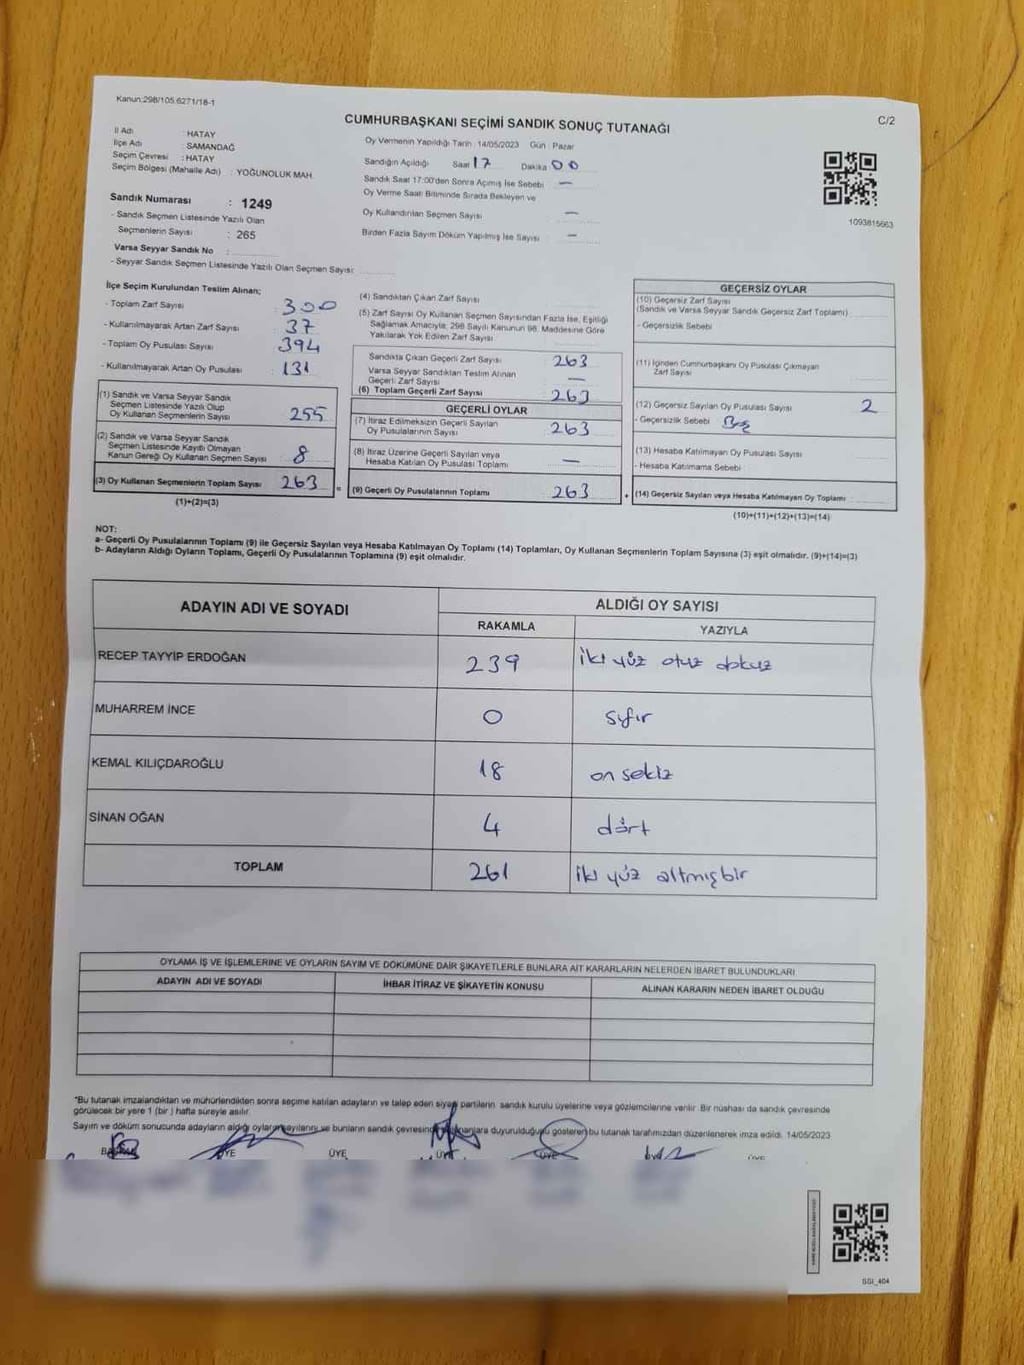 Kanun:298/105.6271/18-1
C/2
CUMHURBAŞKANI SEÇİMİ SANDIK SONUÇ TUTANAĞI
İl Adı : HATAY
İlçe Adı : SAMANDAĞ
Seçim Çevresi : HATAY
Seçim Bölgesi (Mahalle Adı) : YOĞUNOLUK MAH.
Sandık Numarası : 1249
- Sandık Seçmen Listesinde Yazılı Olan
Seçmenlerin Sayısı : 265
Varsa Seyyar Sandık No :
- Seyyar Sandık Seçmen Listesinde Yazılı Olan Seçmen Sayısı:
Oy Vermenin Yapıldığı Tarih : 14/05/2023 Gün : Pazar
Sandığın Açıldığı Saat 17 Dakika 00
Sandık Saat 17:00'den Sonra Açımış İse Sebebi —
Oy Verme Saati Bitiminde Sırada Bekleyen ve
Oy Kullandırılan Seçmen Sayısı —
Birden Fazla Sayım Döküm Yapılmış İse Sayısı —
1093815663
İlçe Seçim Kurulundan Teslim Alınan;
- Toplam Zarf Sayısı : 300
- Kullanılmayarak Artan Zarf Sayısı : 37
- Toplam Oy Pusulası Sayısı : 394
- Kullanılmayarak Artan Oy Pusulası : 131
(1) Sandık ve Varsa Seyyar Sandık
Seçmen Listesinde Yazılı Olup
Oy Kullanan Seçmenlerin Sayısı 255
(2) Sandık ve Varsa Seyyar Sandık
Seçmen Listesinde Kayıtlı Olmayan
Kanun Gereği Oy Kullanan Seçmen Sayısı 8
(3) Oy Kullanan Seçmenlerin Toplam Sayısı 263 =
(1)+(2)=(3)
(4) Sandıktan Çıkan Zarf Sayısı
(5) Zarf Sayısı Oy Kullanan Seçmen Sayısından Fazla İse, Eşitliği
Sağlamak Amacıyla; 298 Sayılı Kanunun 98. Maddesine Göre
Yakılarak Yok Edilen Zarf Sayısı
Sandıkta Çıkan Geçerli Zarf Sayısı 263
Varsa Seyyar Sandıktan Teslim Alınan
Geçerli Zarf Sayısı —
(6) Toplam Geçerli Zarf Sayısı 263
GEÇERLİ OYLAR
(7) İtiraz Edilmeksizin Geçerli Sayılan
Oy Pusulalarının Sayısı 263
(8) İtiraz Üzerine Geçerli Sayılan veya
Hesaba Katılan Oy Pusulası Toplamı —
(9) Geçerli Oy Pusulalarının Toplamı 263 +
GEÇERSİZ OYLAR
(10) Geçersiz Zarf Sayısı
(Sandık ve Varsa Seyyar Sandık Geçersiz Zarf Toplamı)
- Geçersizlik Sebebi
(11) İçinden Cumhurbaşkanı Oy Pusulası Çıkmayan
Zarf Sayısı
(12) Geçersiz Sayılan Oy Pusulası Sayısı 2
- Geçersizlik Sebebi Boş
(13) Hesaba Katılmayan Oy Pusulası Sayısı
- Hesaba Katılmama Sebebi
(14) Geçersiz Sayılan veya Hesaba Katılmayan Oy Toplamı
(10)+(11)+(12)+(13)=(14)
NOT:
a- Geçerli Oy Pusulalarının Toplamı (9) ile Geçersiz Sayılan veya Hesaba Katılmayan Oy Toplamı (14) Toplamları, Oy Kullanan Seçmenlerin Toplam Sayısına (3) eşit olmalıdır. (9)+(14)=(3)
b- Adayların Aldığı Oyların Toplamı, Geçerli Oy Pusulalarının Toplamına (9) eşit olmalıdır.
ADAYIN ADI VE SOYADI ALDIĞI OY SAYISI
RAKAMLA YAZIYLA
RECEP TAYYİP ERDOĞAN 239 iki yüz otuz dokuz
MUHARREM İNCE 0 sıfır
KEMAL KILIÇDAROĞLU 18 on sekiz
SİNAN OĞAN 4 dört
TOPLAM 261 iki yüz altmışbir
OYLAMA İŞ VE İŞLEMLERİNE VE OYLARIN SAYIM VE DÖKÜMÜNE DAİR ŞİKAYETLERLE BUNLARA AİT KARARLARIN NELERDEN İBARET BULUNDUKLARI
ADAYIN ADI VE SOYADI İHBAR İTİRAZ VE ŞİKAYETİN KONUSU ALINAN KARARIN NEDEN İBARET OLDUĞU
*Bu tutanak imzalandıktan ve mühürlendikten sonra seçime katılan adayların ve talep eden siyasi partilerin sandık kurulu üyelerine veya gözlemcilerine verilir. Bir nüshası da sandık çevresinde
görülecek bir yere 1 (bir ) hafta süreyle asılır.
Sayım ve döküm sonucunda adayların aldığı oyların sayılarını ve bunların sandık çevresinde duyurulduğunu gösteren bu tutanak tarafımızdan düzenlenerek imza edildi. 14/05/2023
BAŞKAN ÜYE ÜYE ÜYE ÜYE ÜYE
SSI_404